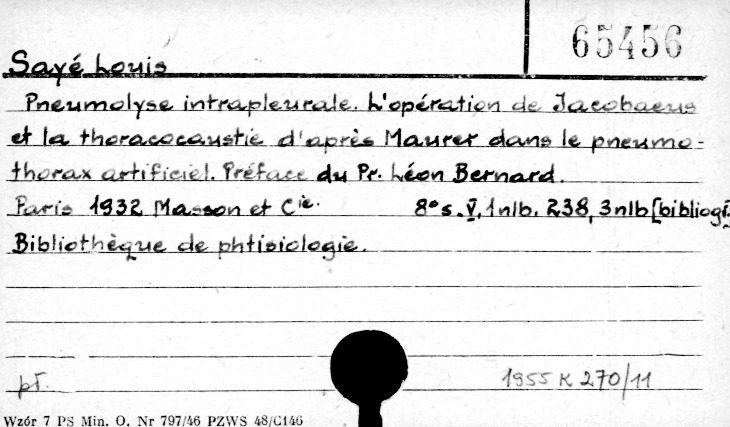 65456
Sayé Louis
Pneumolyse intrapleurale. L'opération de Jacobaeus
et la thoracocaustie d'après Maurer dans le pneumo-
thorax artificiel. Préface du Pr. Léon Bernard.
Paris 1932 Masson et Cie. 8° s. V, 1 nlb. 238, 3 nlb [bibliogr
Bibliothèque de phtisiologie.
pł. 1955 K 270/11
Wzór 7 PS Min. O. Nr 797/46 PZWS 48/C146